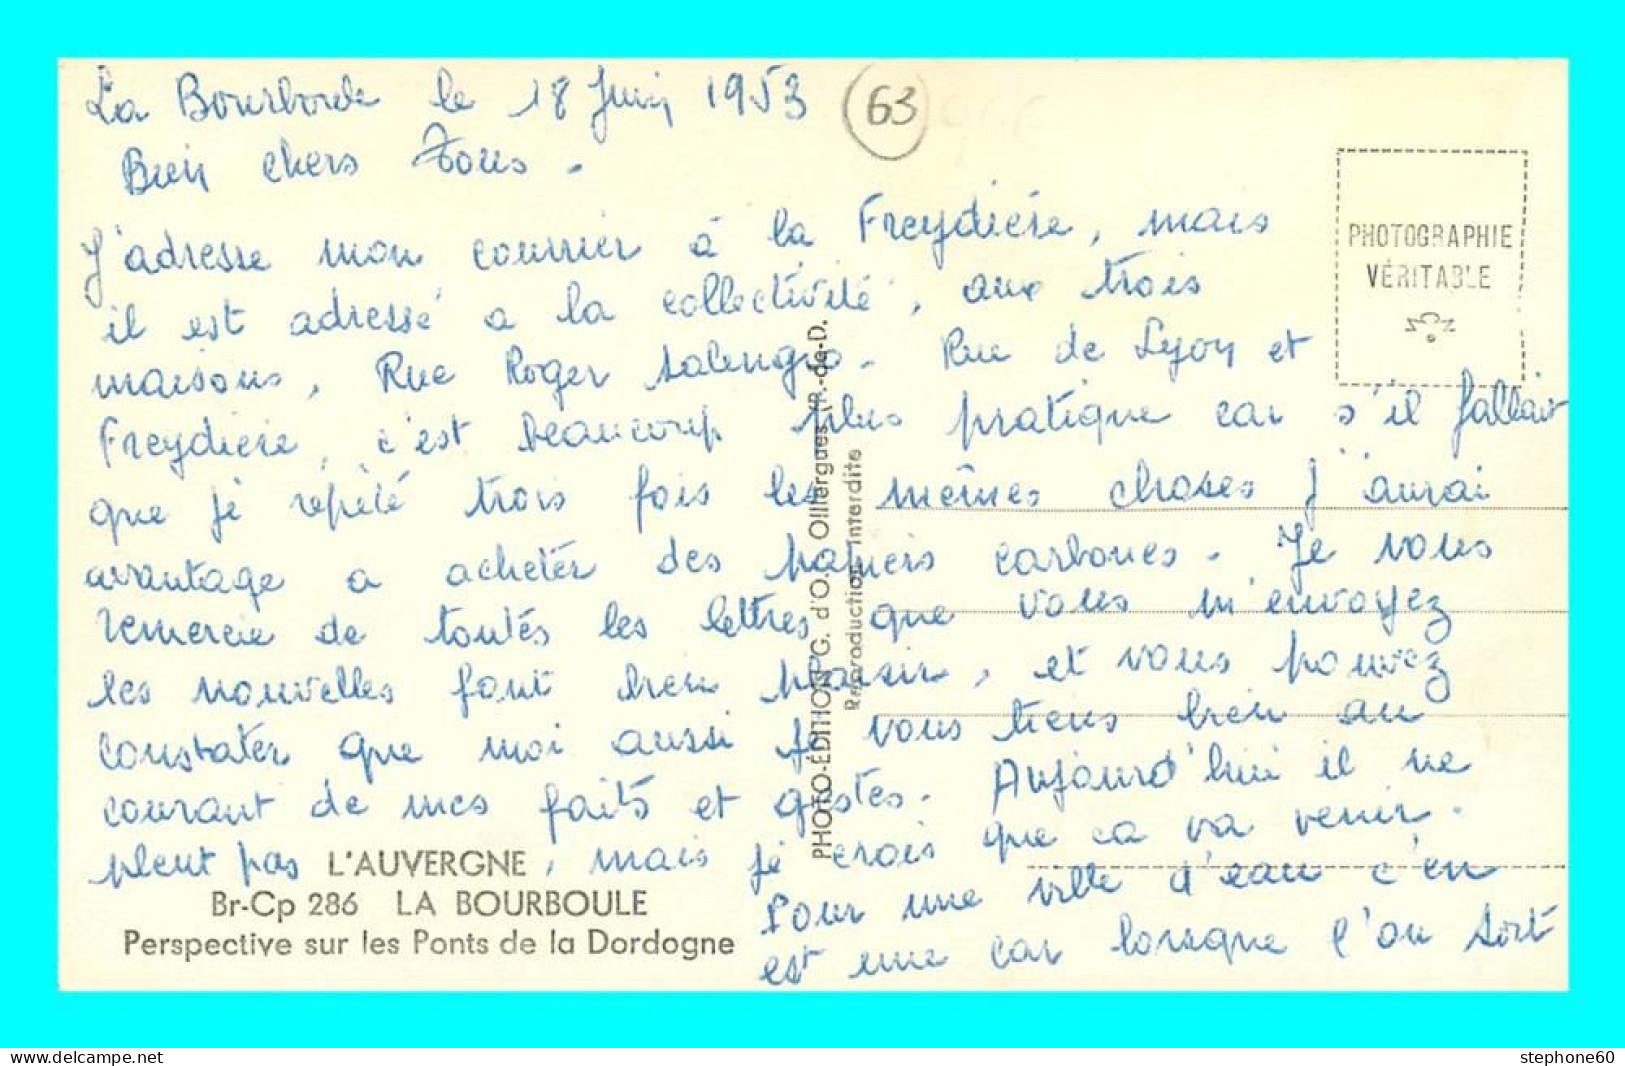 La Bourboule le 18 Juin 1953
63
Bien chers Tous.
J'adresse mon courrier à la Freydière, mais
il est adressé a la collectivité, aux trois
maisons, Rue Roger Salengro. Rue de Lyon et
Freydière, c'est beaucoup plus pratique car s'il fallait
que je repété trois fois les mêmes choses j'aurai
avantage a acheter des papiers carbones. Je vous
remercie de toutes les lettres que vous m'envoyez
les nouvelles font bien plaisir, et vous pouvez
constater que moi aussi je vous tiens bien au
courant de mes faits et gestes. Aujourd'hui il ne
pleut pas, mais je crois que ca va venir.
Pour une ville d'eau c'en
est une car lorsque l'on sort
PHOTOGRAPHIE
VÉRITABLE
PHOTO-ÉDITION G. d'O. Olliergues (P.-de-D.
Reproduction Interdite
L'AUVERGNE
Br-Cp 286 LA BOURBOULE
Perspective sur les Ponts de la Dordogne
www.delcampe.net
stephone60